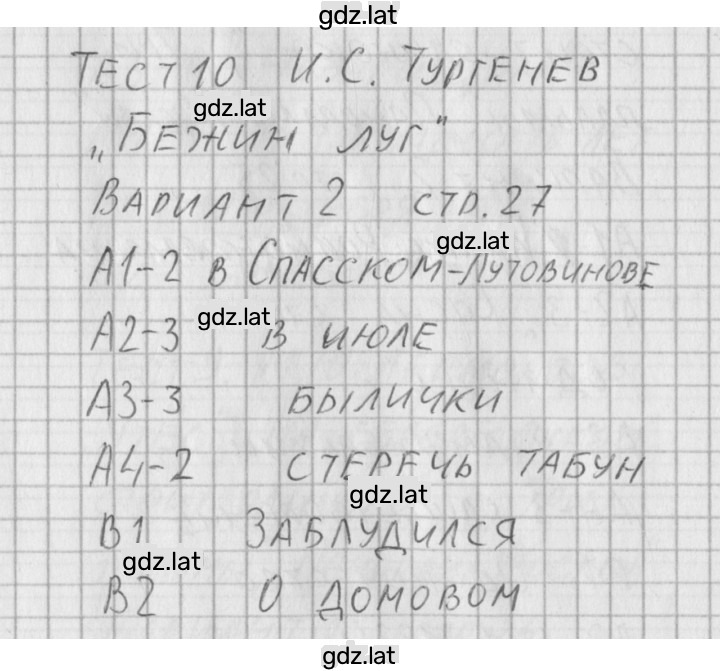 gdz.lat
Тест 10 И.С. Тургенев
gdz.lat
„Бежин луг"
Вариант 2 стр. 27
gdz.lat
А1-2 в Спасском-Лутовинове
А2-3 gdz.lat в июле
А3-3 былички
А4-2 стеречь табун
gdz.lat
В1 Заблудился
gdz.lat
В2 О домовом
gdz.lat